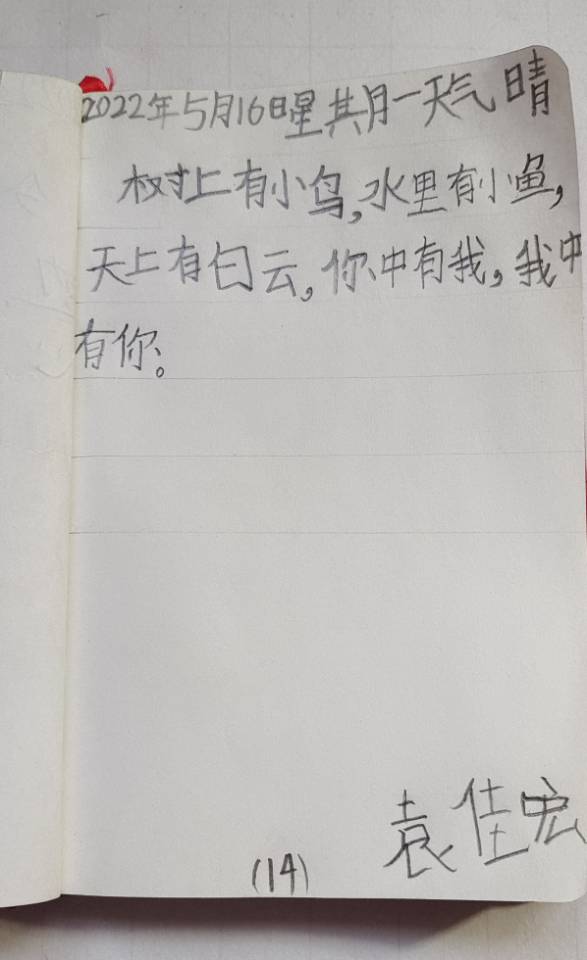 2022年5月16日星其月一天气 晴
树上有小鸟,水里有小鱼,
天上有白云,你中有我,我中
有你。
袁佳宏
(14)